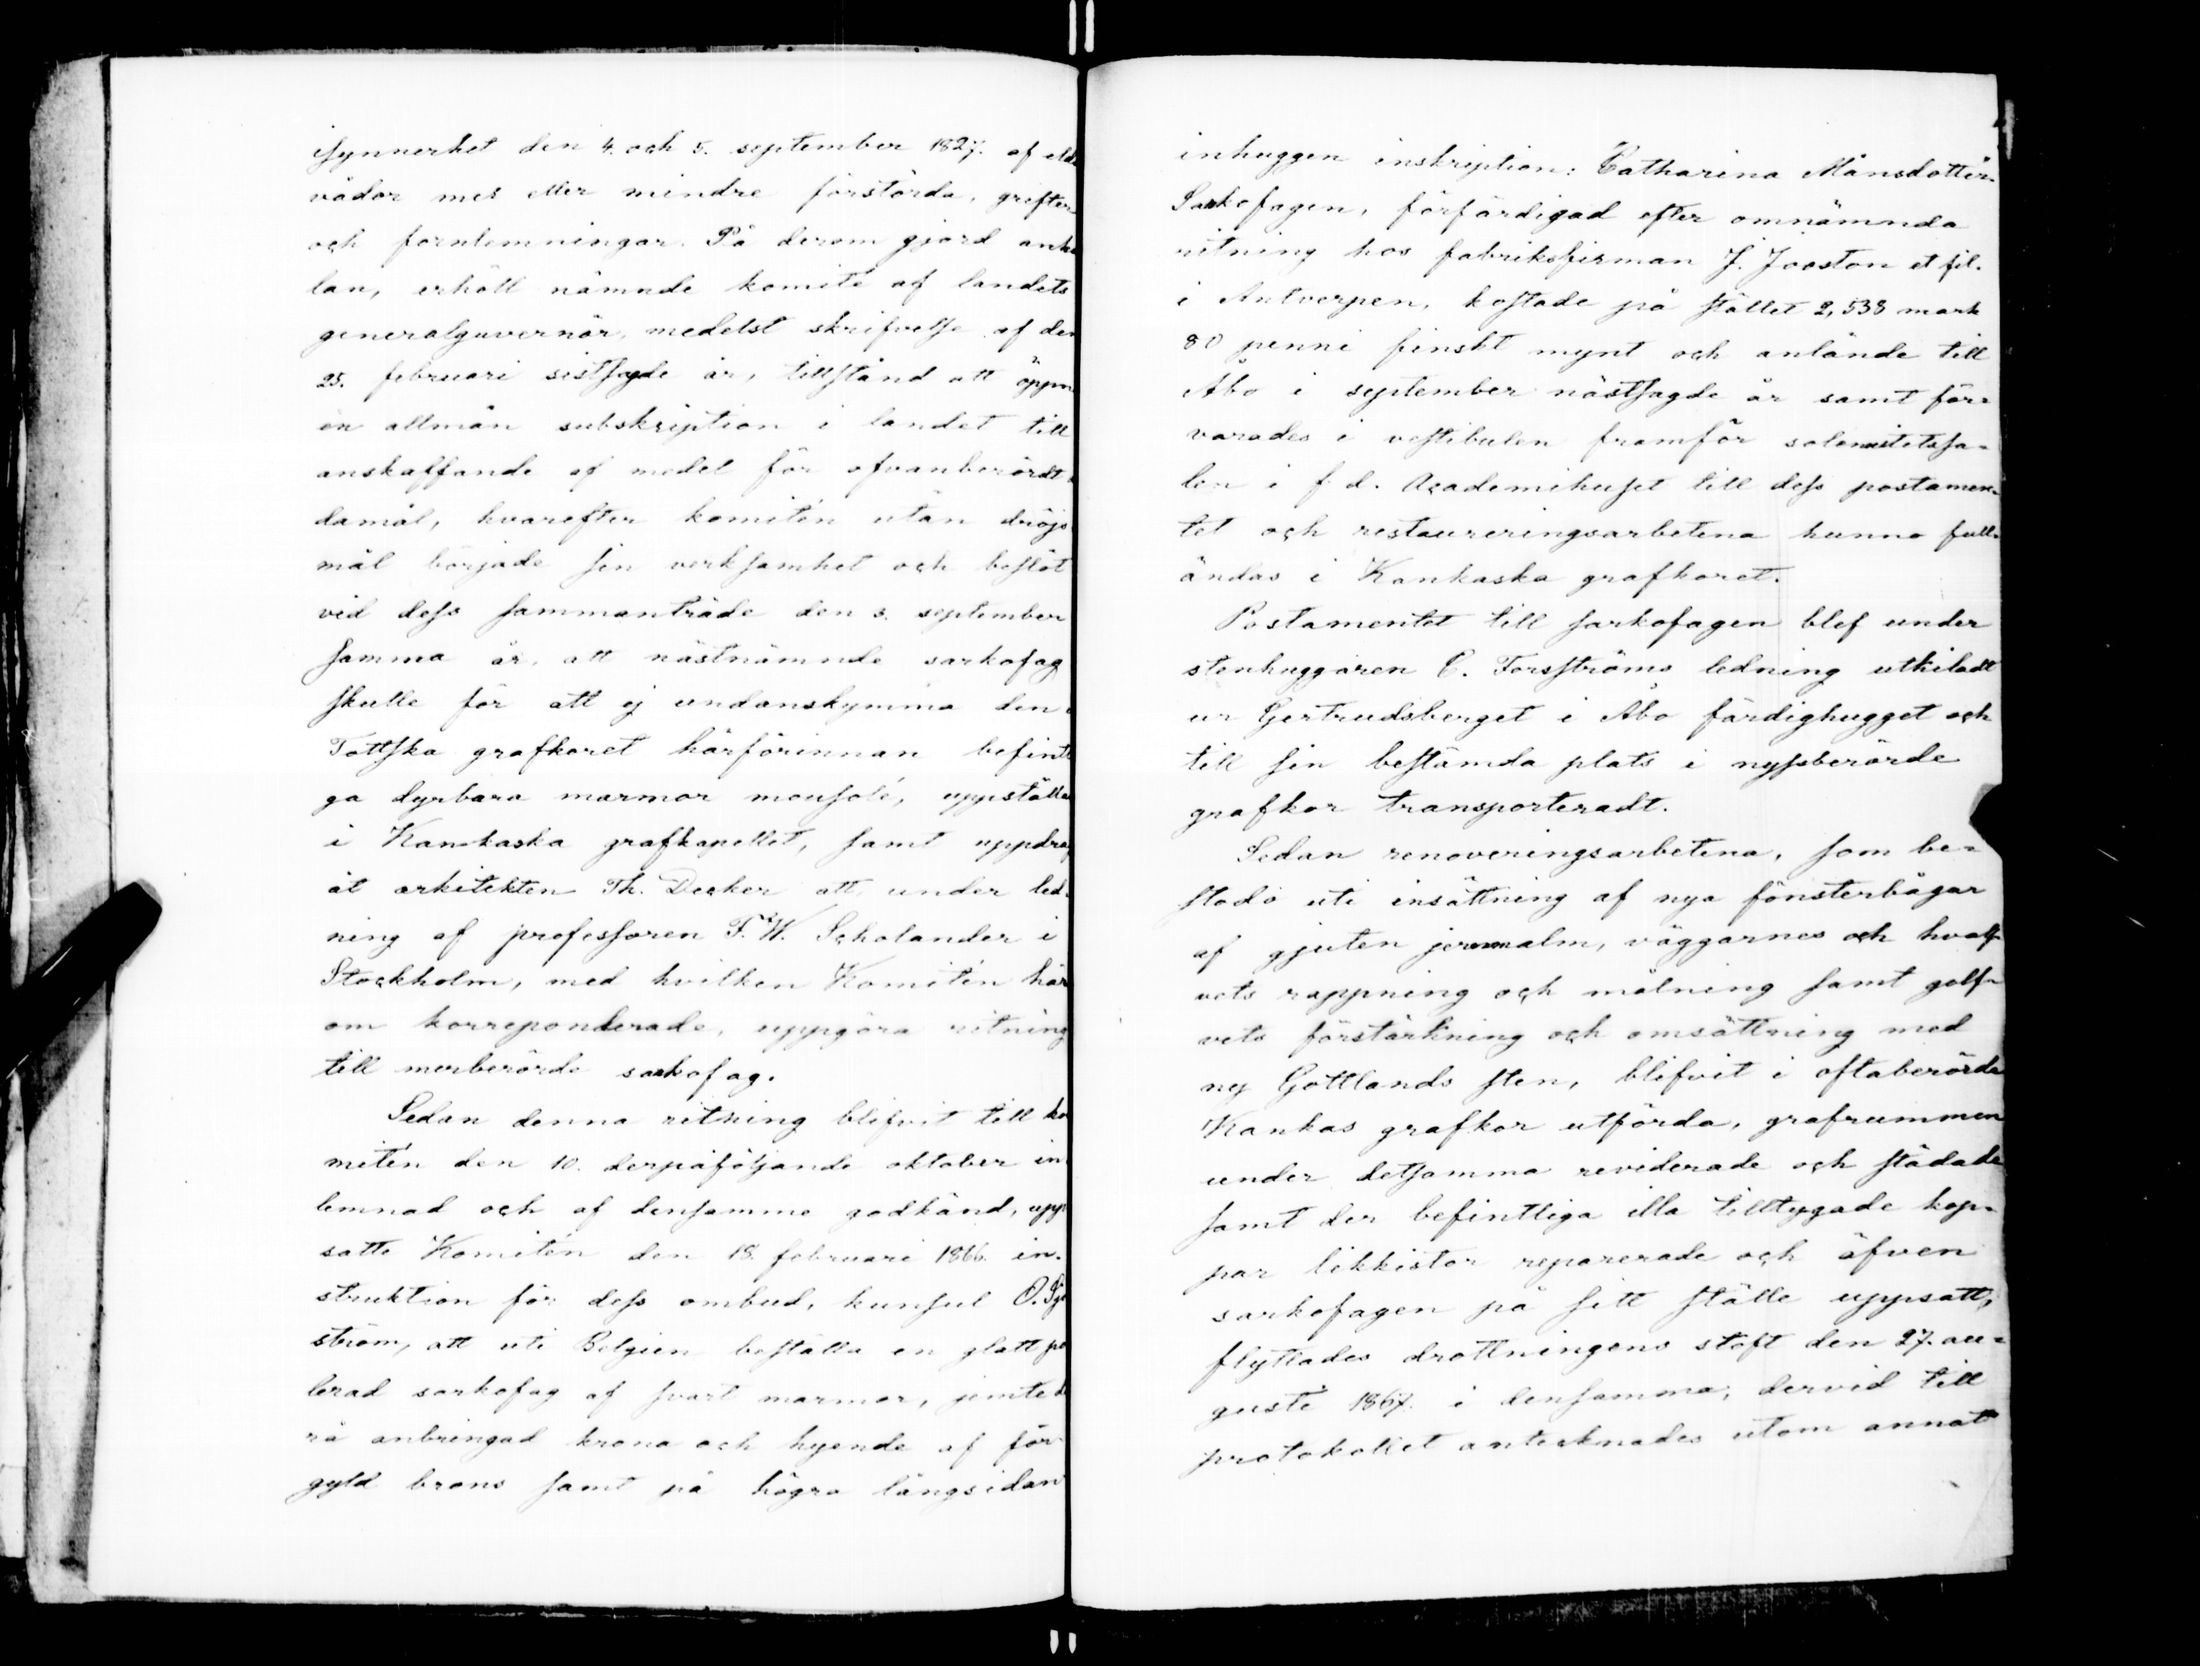 isynnerhet den 4. och 5. september 1827. af eld
vådor mer eller mindre förstörda, grifter
och fornlemningar. På derom gjord anhå
lan, erhöll nämnde komité af landets
generalguvernör, medelst skrifvelse af den
25. februari sistsagde år, tillstånd att öppna
en allmän subskription i landet till
anskaffande af medel för ofvanberördt
damål, hvarefter komitén utan dröjs
mål började sin verksamhet och beslöt
vid dess sammanträde den 3. september
samma år, att nästnämnde sarkofag
skulle för att ej undanskymma den i
Tottska grafkoret härförinnan befintli
ga dyrbara marmor mousolé, uppställas
i Kankaska grafkapellet, samt uppdrog
åt arkitekten Th. Decker att under led-
ning af professoren F. W. Scholander i
Stockholm, med hvilken Komitén här
om korreponderade, uppgöra ritning
till merberörde sarkofag.
Sedan denna ritning blifvit till ko
mitén den 10. derpåföljande oktober in
lemnad och af densamma godkänd, upp
satte Komitén den 18. februari 1866. in-
struktion för dess ombud, kunsul O.
ström, att uti Belgien beställa en glatt po
lerad sarkofag af svart marmor, jemte d
rå anbringad krona och hyende af för
gyld brons samt på högra långsidan
inhuggen inskription: Catharina Månsdotter.
Sarkofagen, förfärdigad efter omnämnda
ritning hos fabriksfirman J. Jooston et fil.
i Antverpen, kostade på stället 2,538 mark
80 penni finskt mynt och anlände till
Åbo i september nästsagde år samt för-
varades i vestibulen framför solenitetssa-
len i f d. Academihuset till dess postamen-
tet och restaureringsarbetena hunno full-
ändas i Kankaska grafkoret.
Postamentet till sarkofagen blef under
stenhuggaren C. Forsströms ledning utkiladt
ur Gertrudsberget i Åbo färdighugget och
till sin bestämda plats i nyssberörde
grafkor transporteradt.
Sedan renoveringsarbetena, som be-
stodo uti insättning af nya fönsterbågar
af gjuten jernmalm, väggarnes och hvalf-
vets rappning och målning samt golf-
vets förstärkning och omsättning med
ny Gottlands sten, blifvit i oftaberörde
Kankas grafkor utförda, grafrummen
under detsamma reviderade och städade
samt der befintliga illa tilltygade kop-
par likkistor reparerade och äfven
sarkofagen på sitt ställe uppsatt,
flyttades drottningens stoft den 27. au-
gusti 1867. i densamma, dervid till
protokollet antecknades utom annat